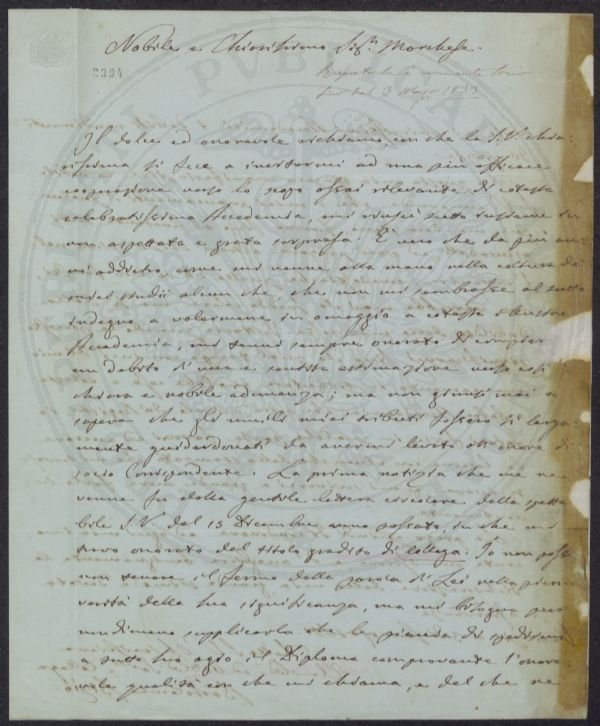 Nobile e Chiarissimo Sig.r Marchese.
3394
Risposto che è corrente socio
fino dal 3 Marzo 1833
Il dolce ed onorevole richiamo, con che la S. V. chia-
rissima si fece a invitarmi ad una più efficace
cooperazione verso lo scopo assai rilevante di cotesta
celebratissima Accademia, mi riuscì tutto insieme
non aspettata e grata sorpresa. È vero che da più an-
ni addietro, come mi venne alla mano nella coltura de'
miei studii alcun che, che non mi sembrasse al tutto
indegno a volermene in omaggio a cotesta illustre
Accademia, mi tenni sempre onorato di compier
un debito di vera e sentita estimazione verso così
chiara e nobile adunanza; ma non giunsi mai a
sapere che gli umili miei tributi fossero sì larga-
mente guiderdonati da avermi levito all'onore di
socio Corrispondente. La prima notizia che me ne
venne fu dalla gentile lettera circolare della spetta-
bile S. V. del 15 Dicembre anno passato, in che mi
trovo onorato del titolo gradito di collega. Io non posso
non tenere il fermo della parola di Lei nella piena
verità della sua significanza, ma mi bisogna pur
nondimeno supplicarla che le piaccia di spedirmi
a tutto suo agio il Diploma comprovante l'onore-
vole qualità con che mi chiama, e del che ne